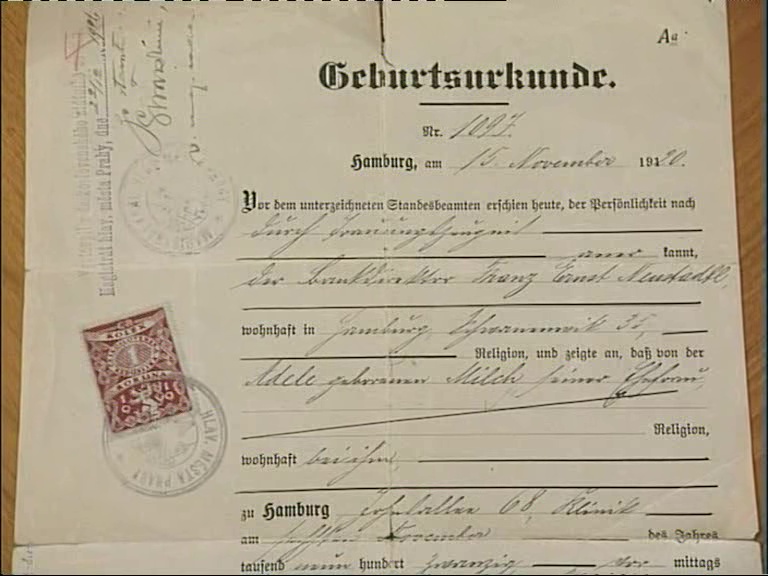 Aa
Geburtsurkunde.
Nr. 1097.
Hamburg, am 15. November 1920.
Vor dem unterzeichneten Standesbeamten erschien heute, der Persönlichkeit nach
durch Trauungszeugnis
aner kannt,
der Bankdirektor Franz Ernst Neustadtl,
wohnhaft in Hamburg, Schwanenwik 35,
Religion, und zeigte an, daß von der
Adele geborenen Milch, seiner Ehefrau,
Religion,
wohnhaft bei ihm,
zu Hamburg 68, Klinik
am November des Jahres
tausend neun hundert zwanzig vor mittags
Magistrát hlav. města Prahy, dne
KOLEK
1
KORUNA
1919
HLAV. MĚSTA PRAHY